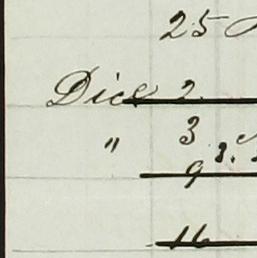 25
Dice 2
" 3
9
16